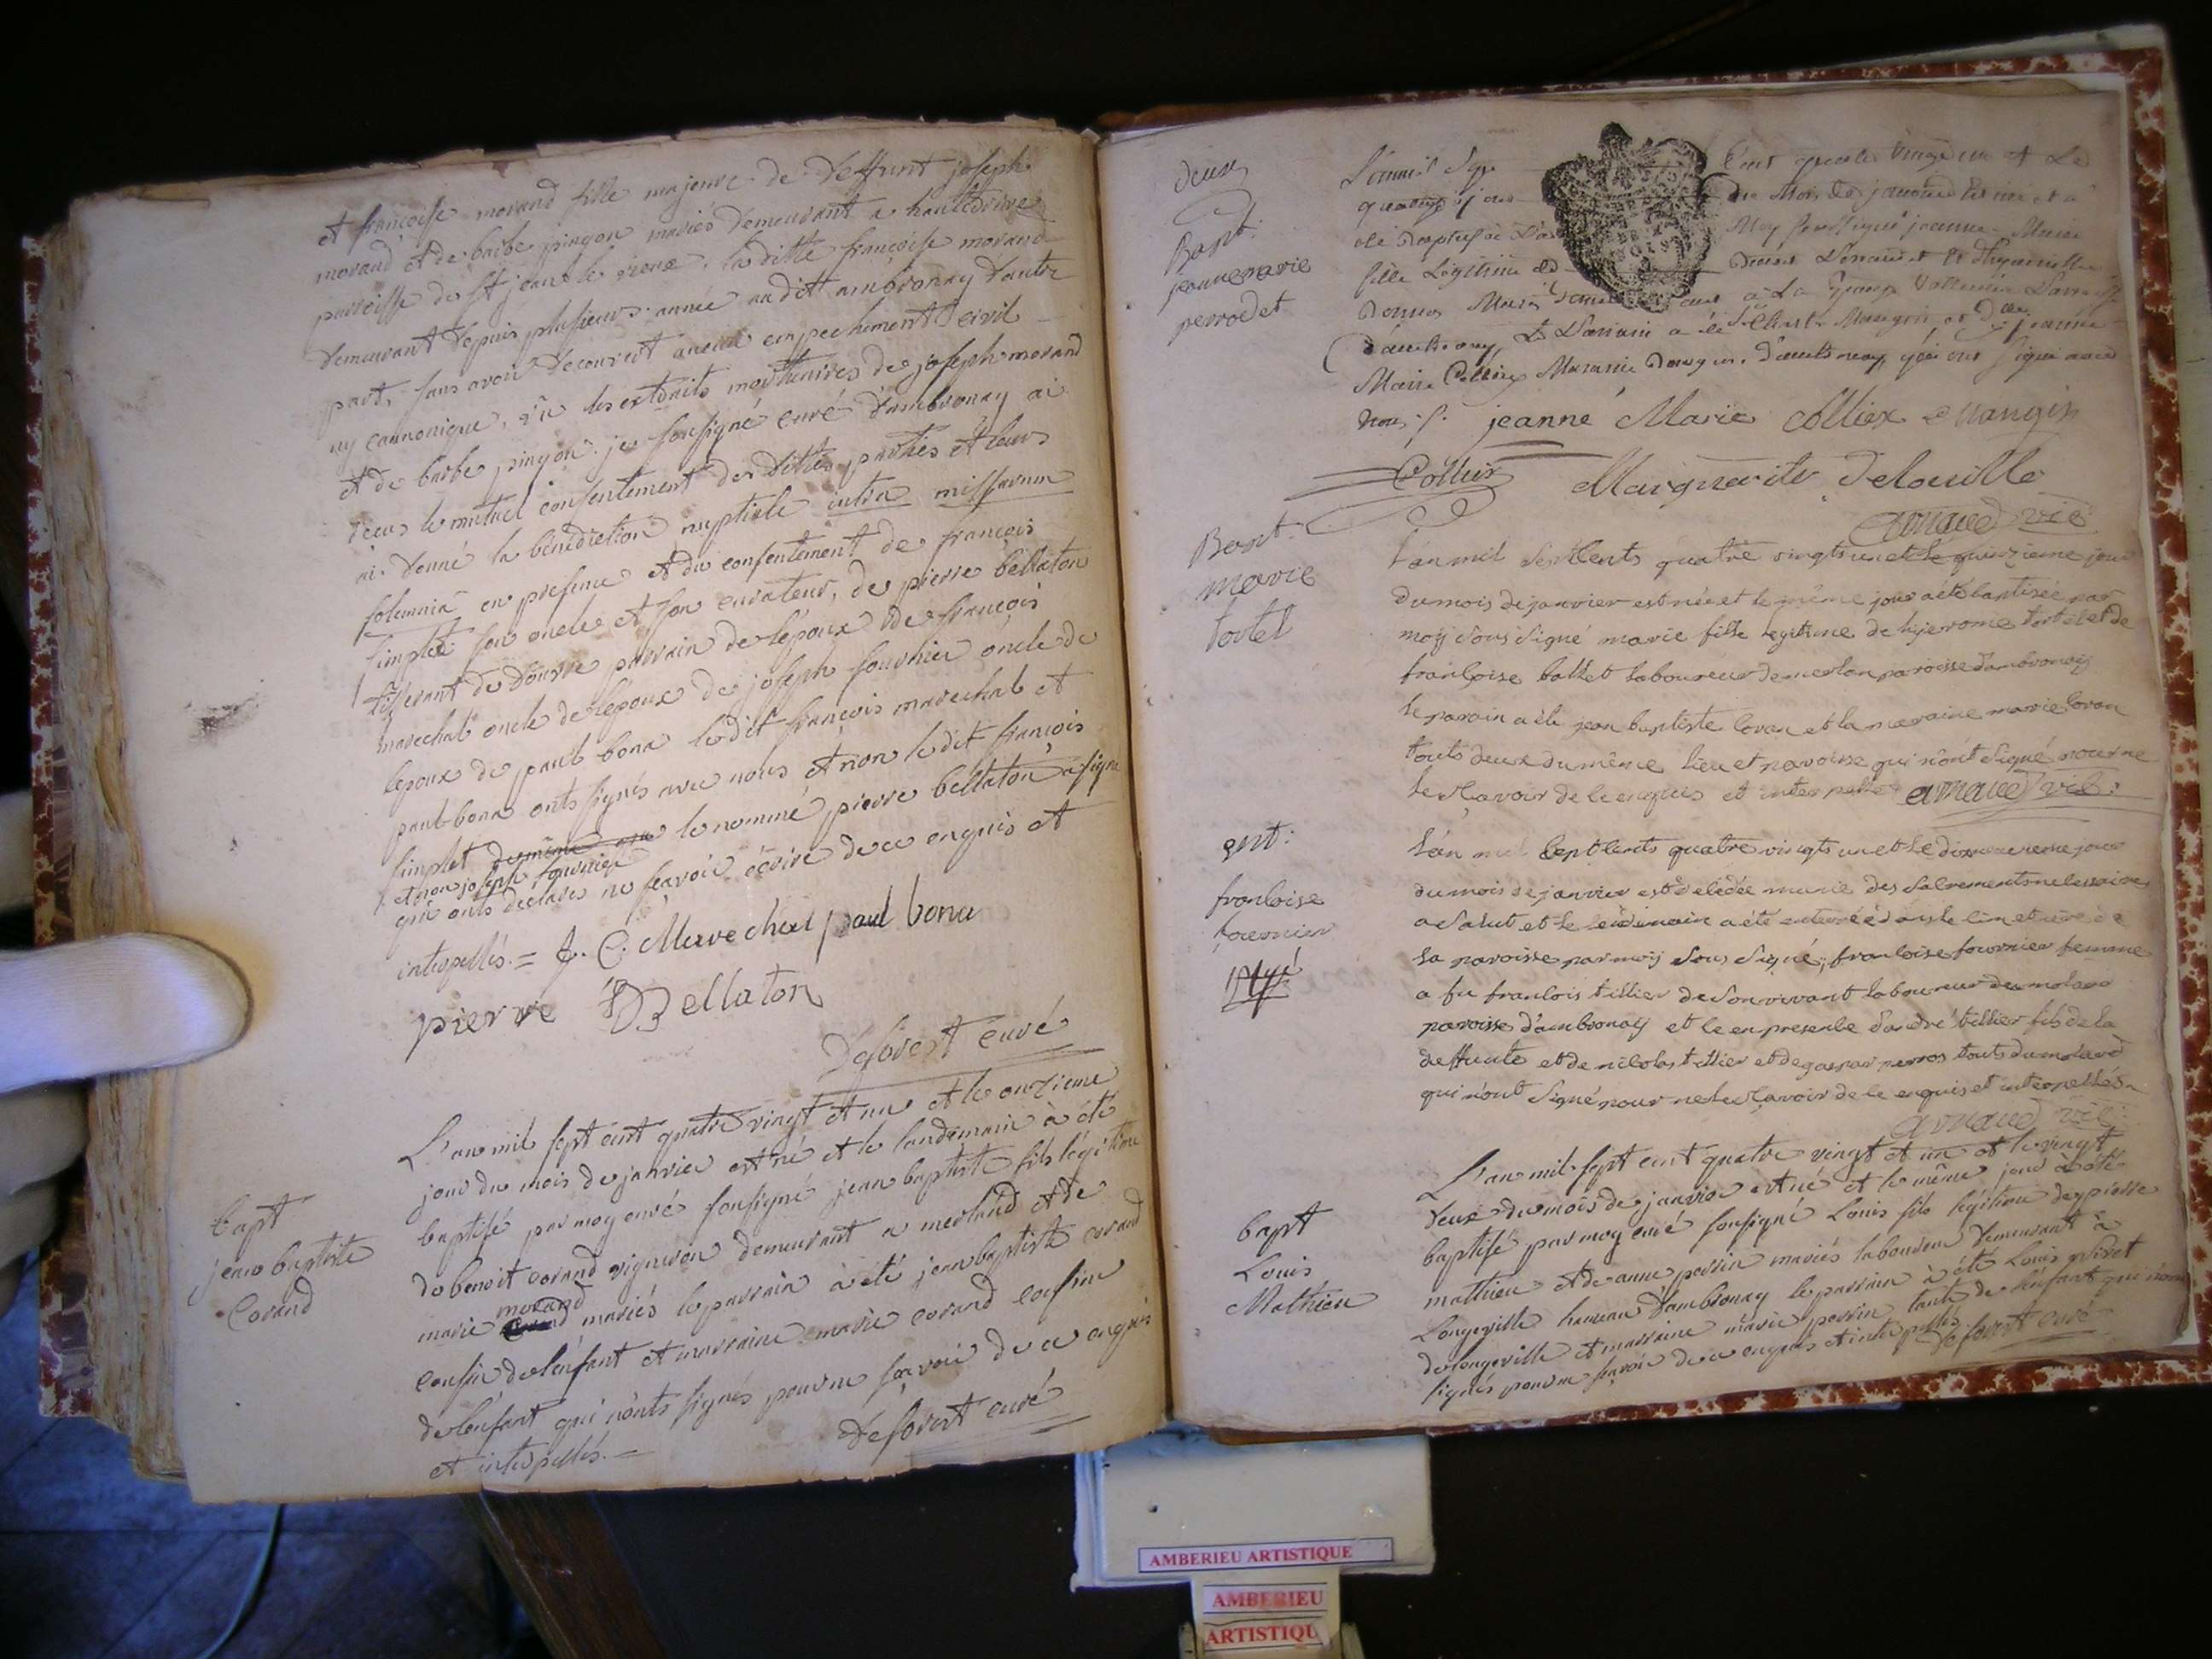 et francoise morand fille majeure de deffunt joseph
morand et de barbe pinçon mariés demeurant a hauterive
paroisse de st jean le vieux. la ditte françoise morand
demeurant depuis plusieurs année au dit ambronay d'autre
part, sans avoir decouvert aucun empechement civil
ny cannonique, vû les extraits mortuaires de joseph morand
et de barbe pinçon. je sousigné curé d'ambronay ai
recus le mutuel consentement des dittes parties et leurs
ai donné la bénédiction nuptiale intra missarum
solemnia en presence et du consentement de françois
simplet son oncle et son curateur, de pierre bellaton
tisserant de parrain de lépoux de françois
marechal oncle de lépoux de joseph fournier oncle de
lépoux de paul bona le dit françois marechal et
paul bona onts signés avec nous et non le dit françois
simplet le nommé pierre bellaton a signé
et non joseph fournier
qui onts déclarés ne sçavoir écrire de ce enquis et
interpellés.= f. C. Marechal paul bona
pierre Bellaton
deforest curé
bapt
jean baptiste
Corand
L'an mil sept cent quatre vingt et un et le onzieme
jour du mois de janvier est né et le landemain à été
baptisé par moy curé sousigné jean baptiste fils légitime
de benoit corand vigneron demeurant a merland et de
morand
marie mariés le parrain à été jean baptiste corand
cousin de lénfant et marraine marie corand cousine
de lénfant qui nónts signés pour ne sçavoir de ce enquis
et interpellés.= deforest curé
deux
Bapt:
jeanne marie
perrodet
L'an mil sept cent quatre vingt un et le
quatorze jour du mois de janvier est née et a
été baptisée par Moy sous signé jeanne Marie
fille Légitime
d'ambronay Le Parrain a été
Marie Collier d'ambronay, qui ont signé avec
nous ./. jeanne Marie Colliex Mangin
Collier Marguerite Delouille
arnaud vic
Bapt:
marie
tortel
l'an mil sept cents quatre vingts un et le quinzieme jour
du mois de janvier est née et le même jour a été baptisée par
moy sous signé marie fille legitime de hyerome tortel et de
françoise ballet laboureur de merlan paroisse d'ambronay
le parain a été jean baptiste coran et la maraine marie coran
touts deux du même lieu et paroisse qui n'ont signé pour ne
le sçavoir de ce enquis et interpellé arnaud vic:
ent:
francoise
fournier
l'an mil sept cents quatre vingts un et le dixneuvieme jour
du mois de janvier est decedée munie des sacrements necessaires
a salut et le lendemain a été enterrée dans le cimetiere de
la paroisse par moy sous signé, francoise fournier femme
a fu francois tillier de son vivant laboureur du molard
paroisse d'ambronay et ce en presence d'andré tillier fils de la
deffunte et de nicolas tillier et de gaspar perros touts du molard
qui n'ont signé pour ne le sçavoir de ce enquis et interpellés
arnaud vic:
bapt
Louis
Mathieu
L'an mil sept cent quatre vingt et un et le vingt
deux du mois de janvier est né et le même jour à été
baptisé par moy curé sousigné Louis fils légitime de pierre
mathieu et de anne perrin mariés laboureur demeurant à
Longeville hameau d'ambronay le parrain à été Louis
de longeville et marraine marie perrin tante de lénfant qui nónts
signés pour ne sçavoir de ce enquis et interpellés. deforest curé
AMBERIEU ARTISTIQUE
AMBERIEU
ARTISTIQU